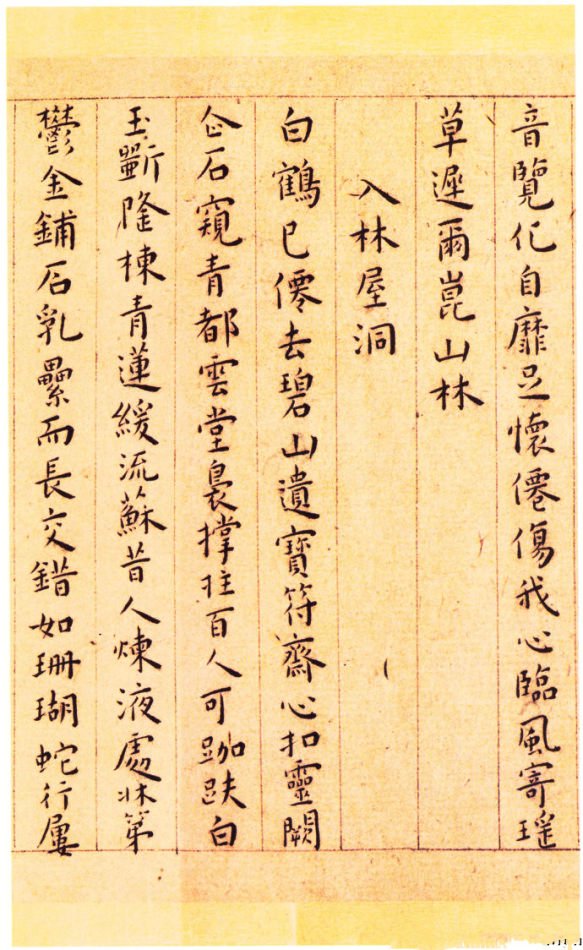 音覽化自靡足懷僊傷我心臨風寄瑤
草遲爾崑山林
入林屋洞
白鶴已僊去碧山遺寶符齋心扣靈闕
企石窺青都雲堂裊撐拄百人可跏趺白
玉斵隆棟青蓮緩流蘇昔人煉液處牀第
鬱金鋪石乳纍而長交錯如珊瑚蛇行屢